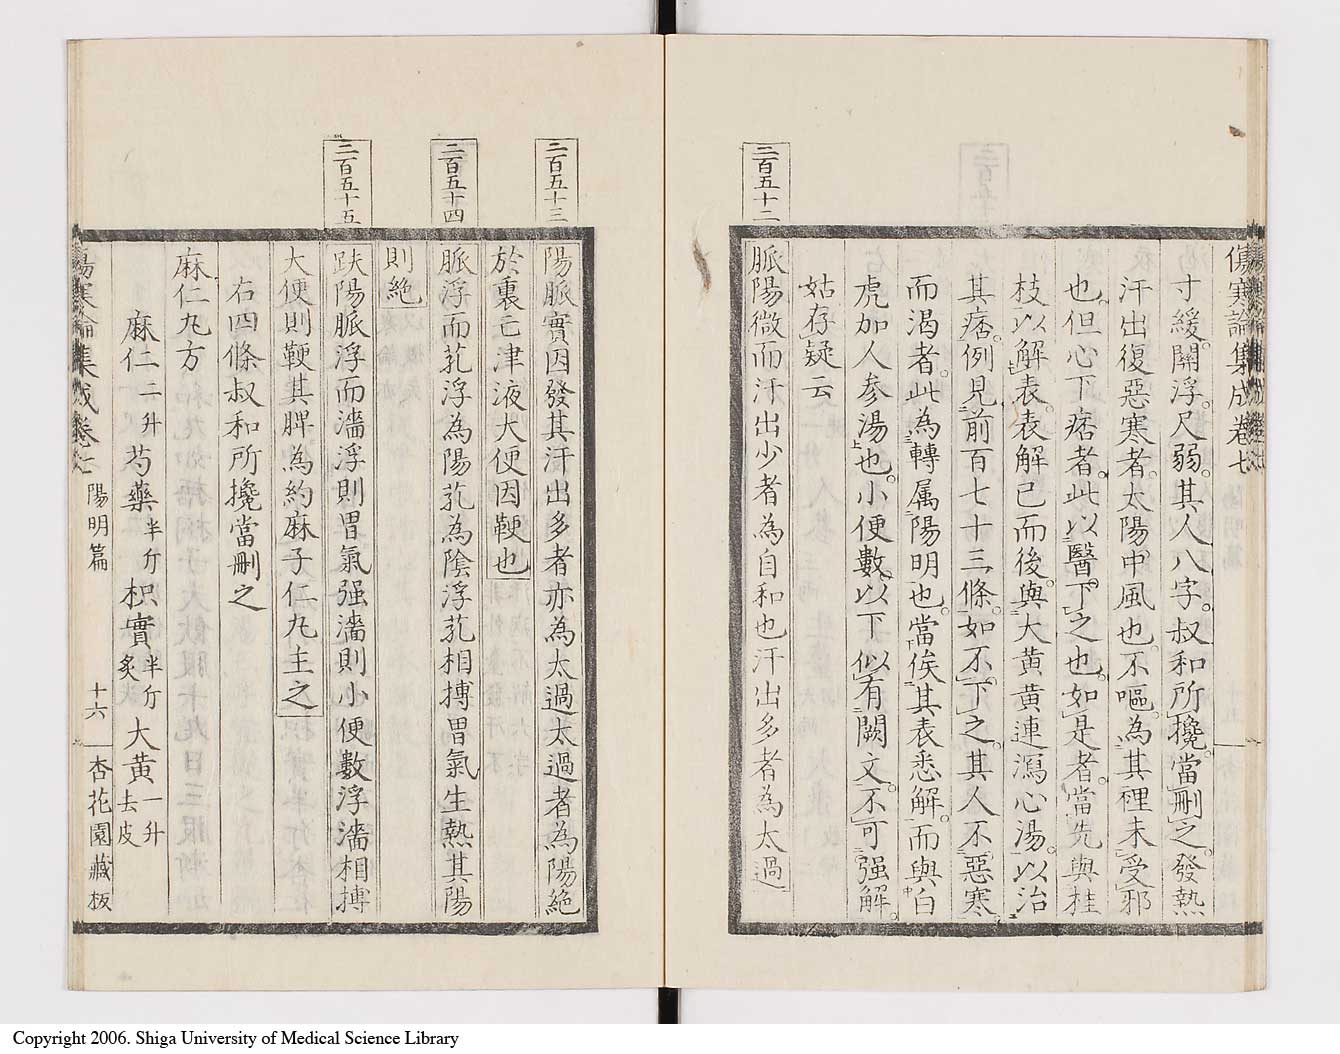 傷寒論集成卷七
寸緩。關浮。尺弱。其人八字。叔和所攙。當刪之。發熱
汗出復惡寒者。太陽中風也。不嘔。為其裡未受邪
也。但心下痞者。此以醫下之也。如是者。當先與桂
枝以解表。表解已而後。與大黃黃連瀉心湯。以治
其痞。例見前百七十三條。如不下之。其人不惡寒
而渴者。此為轉属陽明也。當俟其表悉解。而與白
虎加人参湯也。小便數。以下似有闕文。不可强解。
姑存疑云
二百五十二
脈陽微而汗出少者為自和也汗出多者為太過
二百五十三
陽脈實因發其汗出多者亦為太過太過者為陽絕
於裏亡津液大便因鞕也
二百五十四
脈浮而芤浮為陽芤為陰浮芤相摶胃氣生熱其陽
則絕
二百五十五
趺陽脈浮而濇浮則胃氣强濇則小便數浮濇相摶
大便則鞕其脾為約麻子仁丸主之
右四條叔和所攙當刪之
麻仁丸方
麻仁二升 芍藥半斤 枳實半斤炙 大黃一升去皮
傷寒論集成卷七 陽明篇 十六 杏花園藏板
Copyright 2006. Shiga University of Medical Science Library